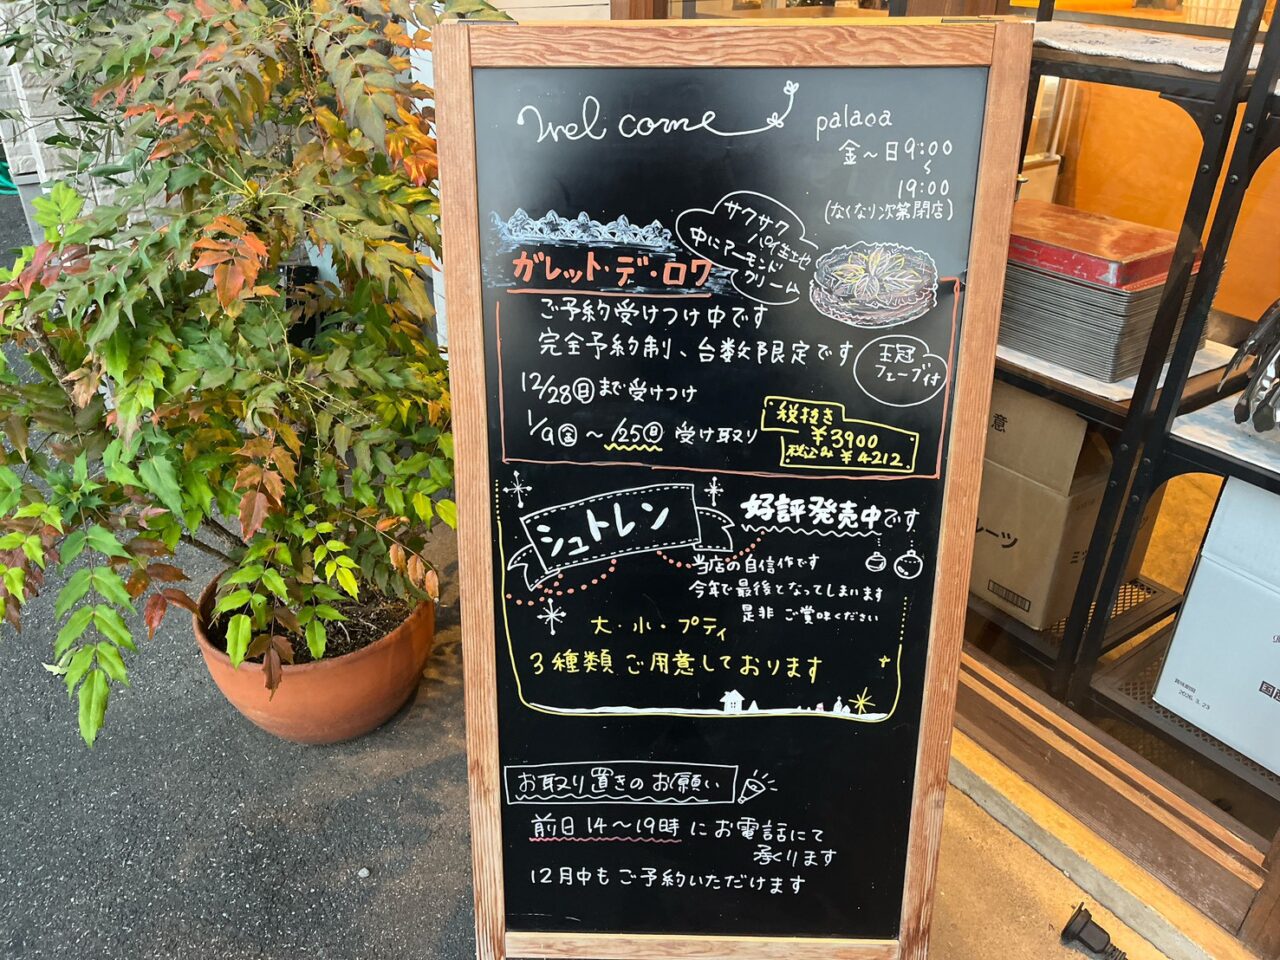 Welcome
palaoa
金〜日9:00
〜
19:00
(なくなり次第閉店)
サクサク
パイ生地
中にアーモンド
クリーム
ガレット・デ・ロワ
ご予約受けつけ中です
完全予約制、台数限定です
王冠
フェーブ付
12/28㊐まで受けつけ
1/9㊎〜1/25㊐ 受け取り
税抜き
¥3900
税込み¥4212
シュトレン
好評発売中です
当店の自信作です
今年で最後となってしまいます
是非 ご賞味ください
大・小・プティ
3種類ご用意しております
お取り置きのお願い
前日14〜19時にお電話にて
承ります
12月中もご予約いただけます
賞味期限
2026.3.23